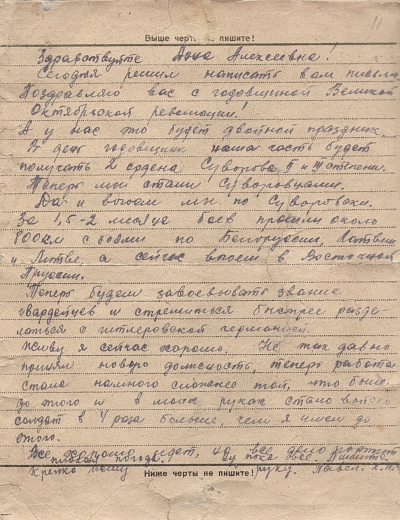 11
Выше черты не пишите!
Здравствуйте Анна Алексеевна!
Сегодня решил написать вам письмо
Поздравляю вас с годовщиной Великой
Октябрьской революции!
А у нас это будет двойной праздник.
В день годовщины наша часть будет
получать 2 ордена Суворова II и III степени.
Теперь мы стали Суворовцами.
Да и воюем мы по Суворовски.
За 1,5-2 месяца боев прошли около
800 км с боями по Белоруссии, Латвии
и Литве, а сейчас воюем в Восточной
Пруссии.
Теперь будем завоевывать звание
гвардейцев и стремиться быстрее разде-
латься с гитлеровской германией.
Живу я сейчас хорошо. Не так давно
принял новую должность, теперь работа
стала намного сложнее той, что была
до этого и в моих руках стало
солдат в 4 раза больше, чем я имел до
этого.
Все хорошо идет, но все дело портит
плохая погода. Ну пока все. Пишите.
Крепко жму руку. Павел.
Ниже черты не пишите!